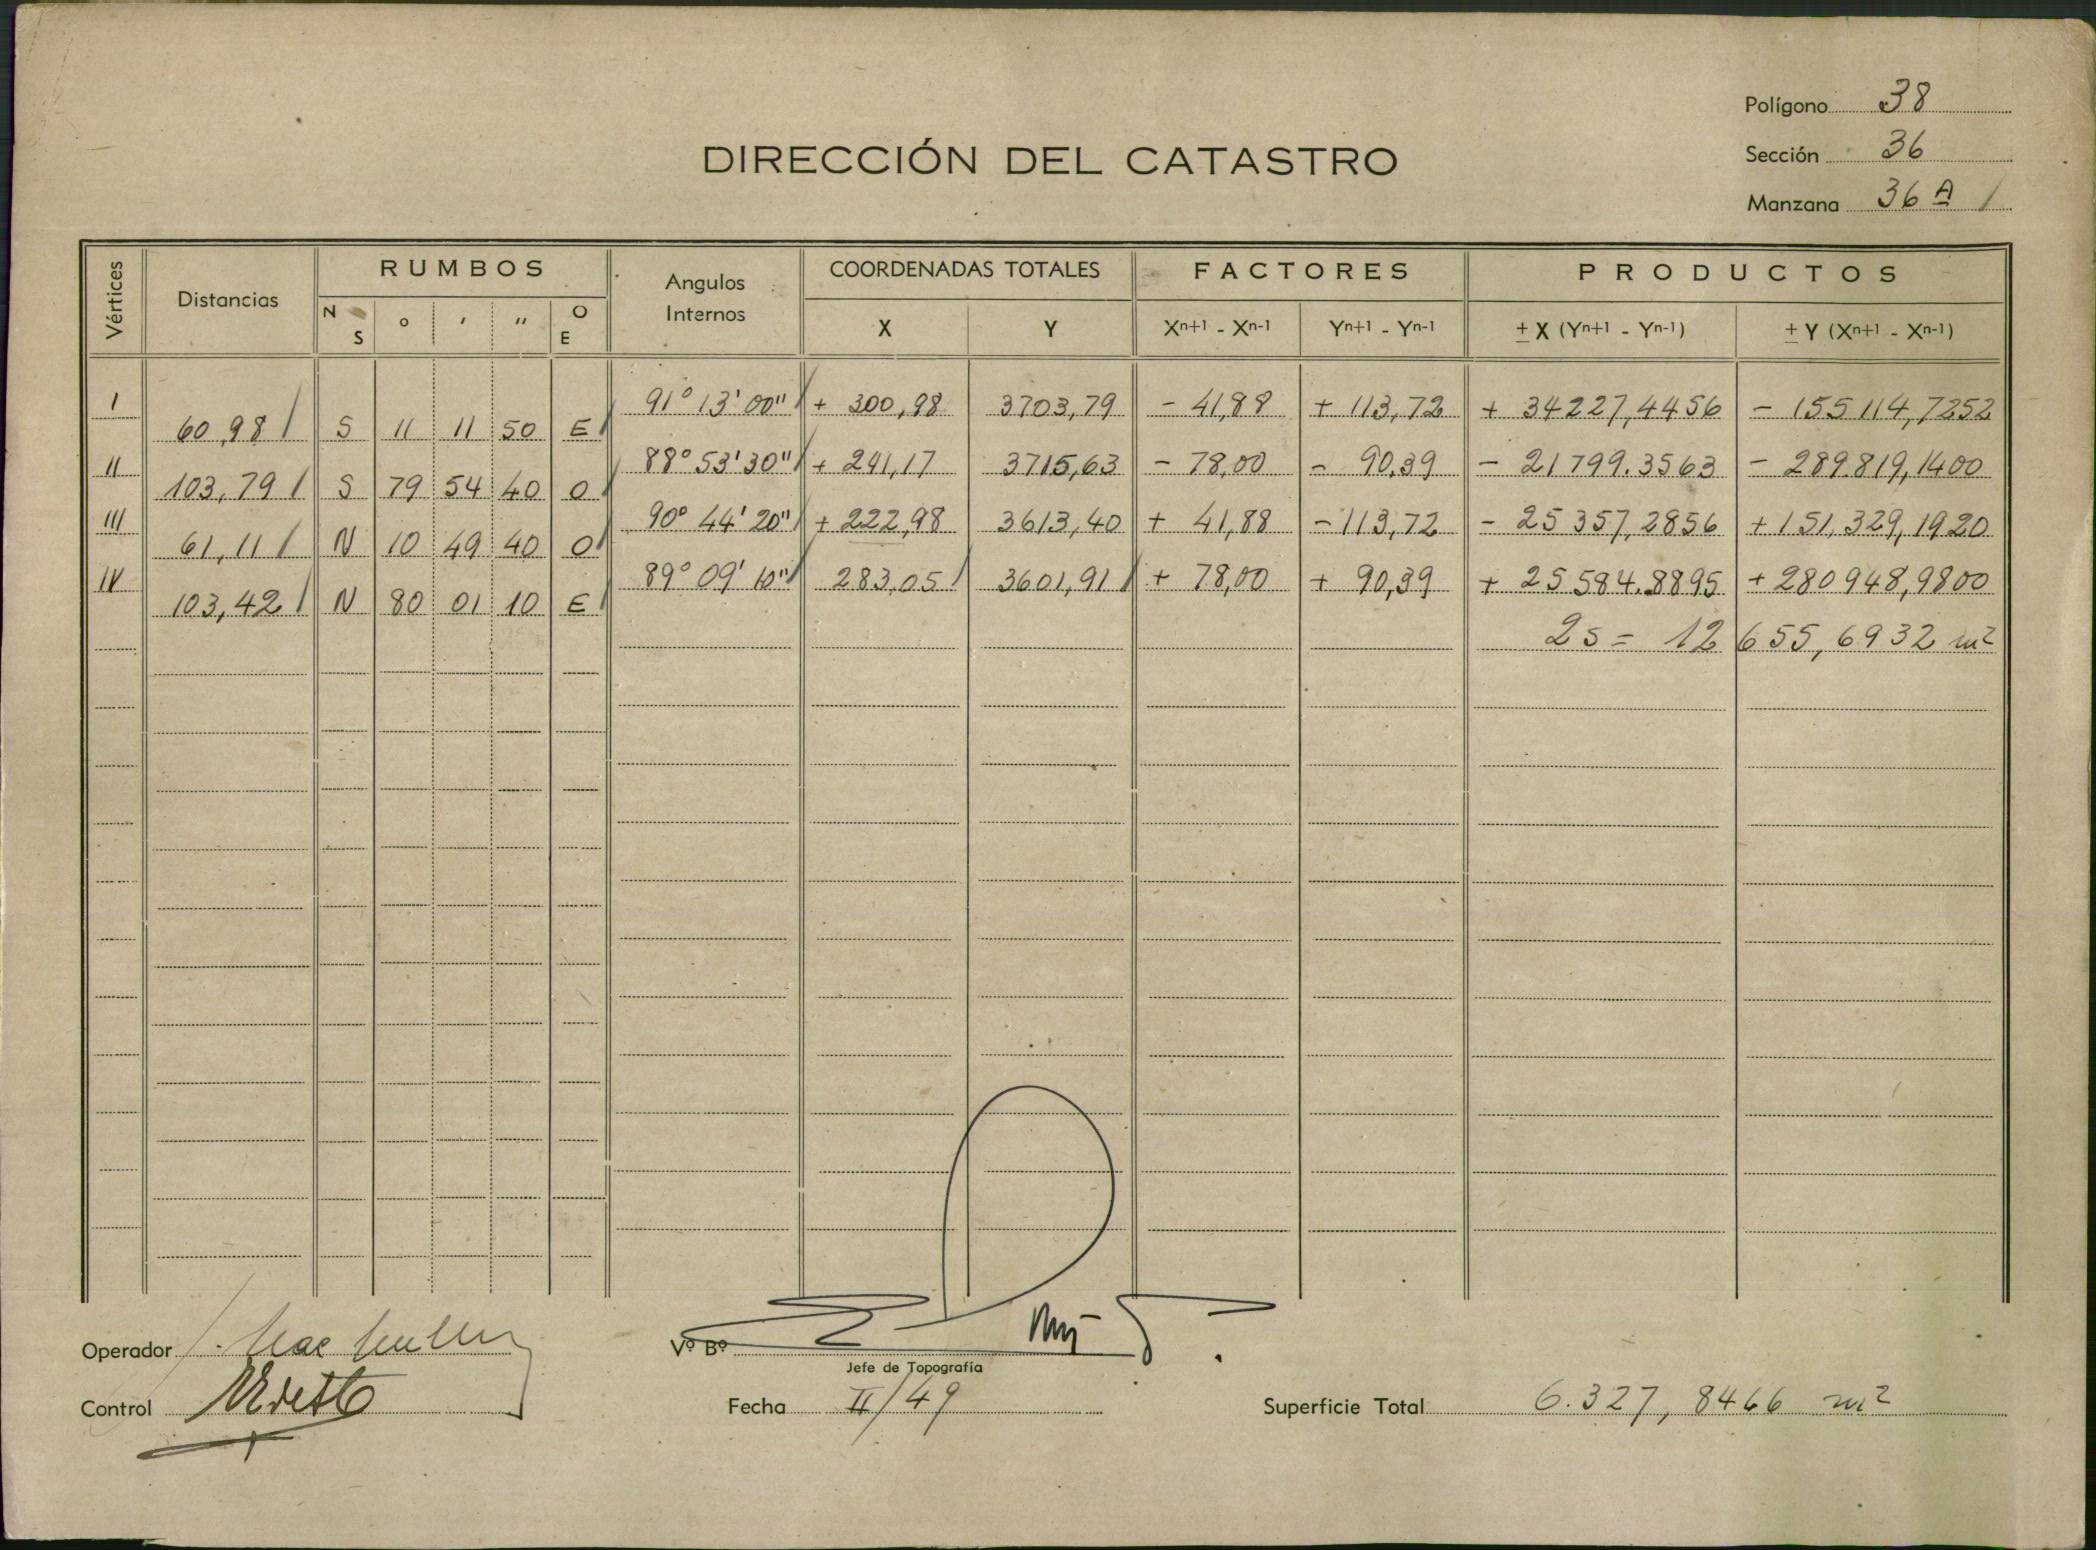 Polígono 38
DIRECCIÓN DEL CATASTRO
Sección 36
Manzana 36 A /
Vértices Distancias RUMBOS Angulos Internos COORDENADAS TOTALES FACTORES PRODUCTOS
N S ° ' " O E X Y Xn+1 - Xn-1 Yn+1 - Yn-1 ± X (Yn+1 - Yn-1) ± Y (Xn+1 - Xn-1)
I 91° 13' 00" + 300,98 3703,79 - 41,88 + 113,72 + 34227,4456 - 155114,7252
60,98 S 11 11 50 E
II 88° 53' 30" + 241,17 3715,63 - 78,00 - 90,39 - 21799.3563 - 289.819,1400
103,79 S 79 54 40 O
III 90° 44' 20" + 222,98 3613,40 + 41,88 - 113,72 - 25357,2856 + 151,329,1920
61,11 N 10 49 40 O
IV 89° 09' 10" 283,05 3601,91 + 78,00 + 90,39 + 25584.8895 + 280948,9800
103,42 N 80 01 10 E
2s = 12 655,6932 m²
Operador
Vº Bº
Jefe de Topografía
Control
Fecha II/49
Superficie Total 6.327,8466 m²